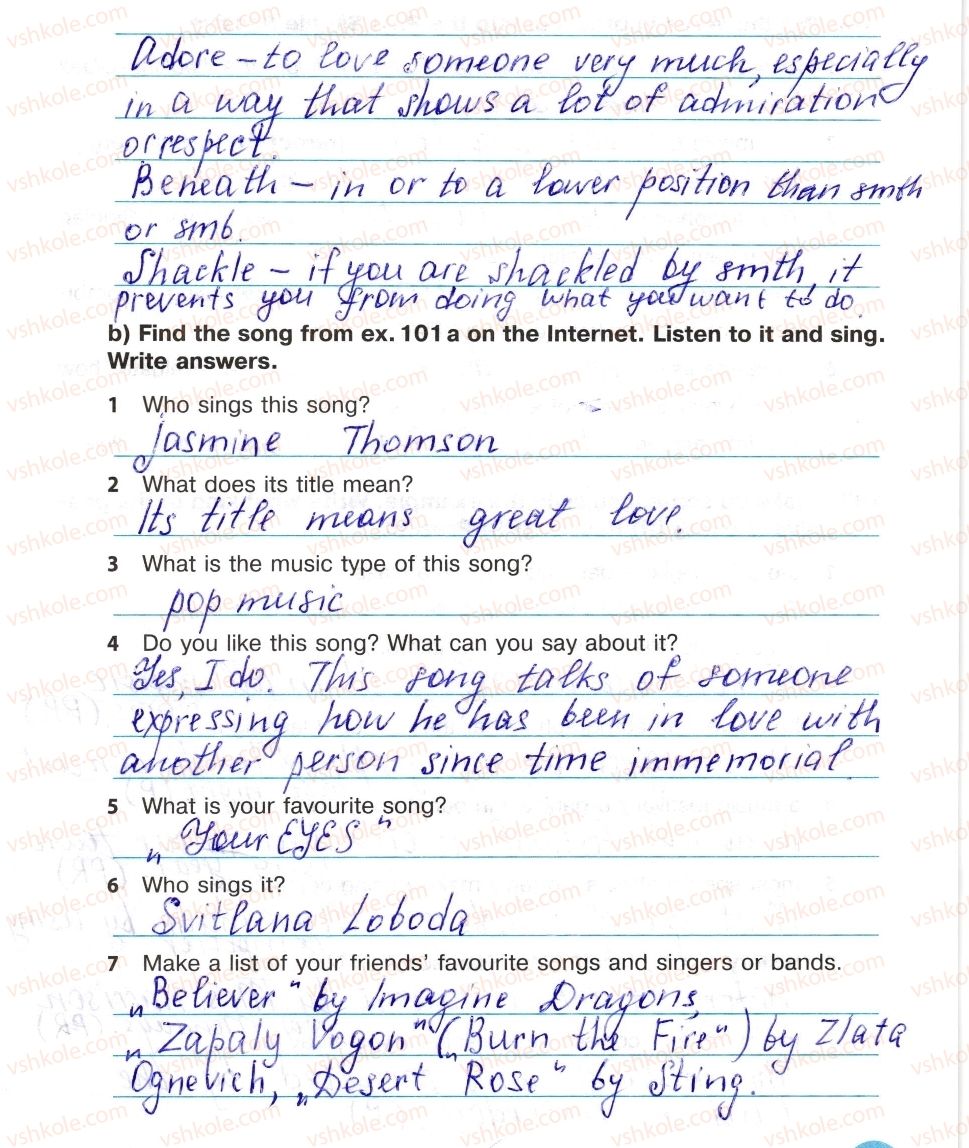 Adore – to love someone very much, especially
in a way that shows a lot of admiration
or respect.
Beneath – in or to a lower position than smth
or smb.
Shackle – if you are shackled by smth, it
prevents you from doing what you want to do
b) Find the song from ex. 101 a on the Internet. Listen to it and sing.
Write answers.
1 Who sings this song?
Jasmine Thomson
2 What does its title mean?
Its title means great love.
3 What is the music type of this song?
pop music
4 Do you like this song? What can you say about it?
Yes, I do. This song talks of someone
expressing how he has been in love with
another person since time immemorial.
5 What is your favourite song?
„Your EYES“
6 Who sings it?
Svitlana Loboda
7 Make a list of your friends' favourite songs and singers or bands.
„Believer“ by Imagine Dragons,
„Zapaly Vogon“ („Burn the Fire“) by Zlata
Ognevich, „Desert Rose“ by Sting.